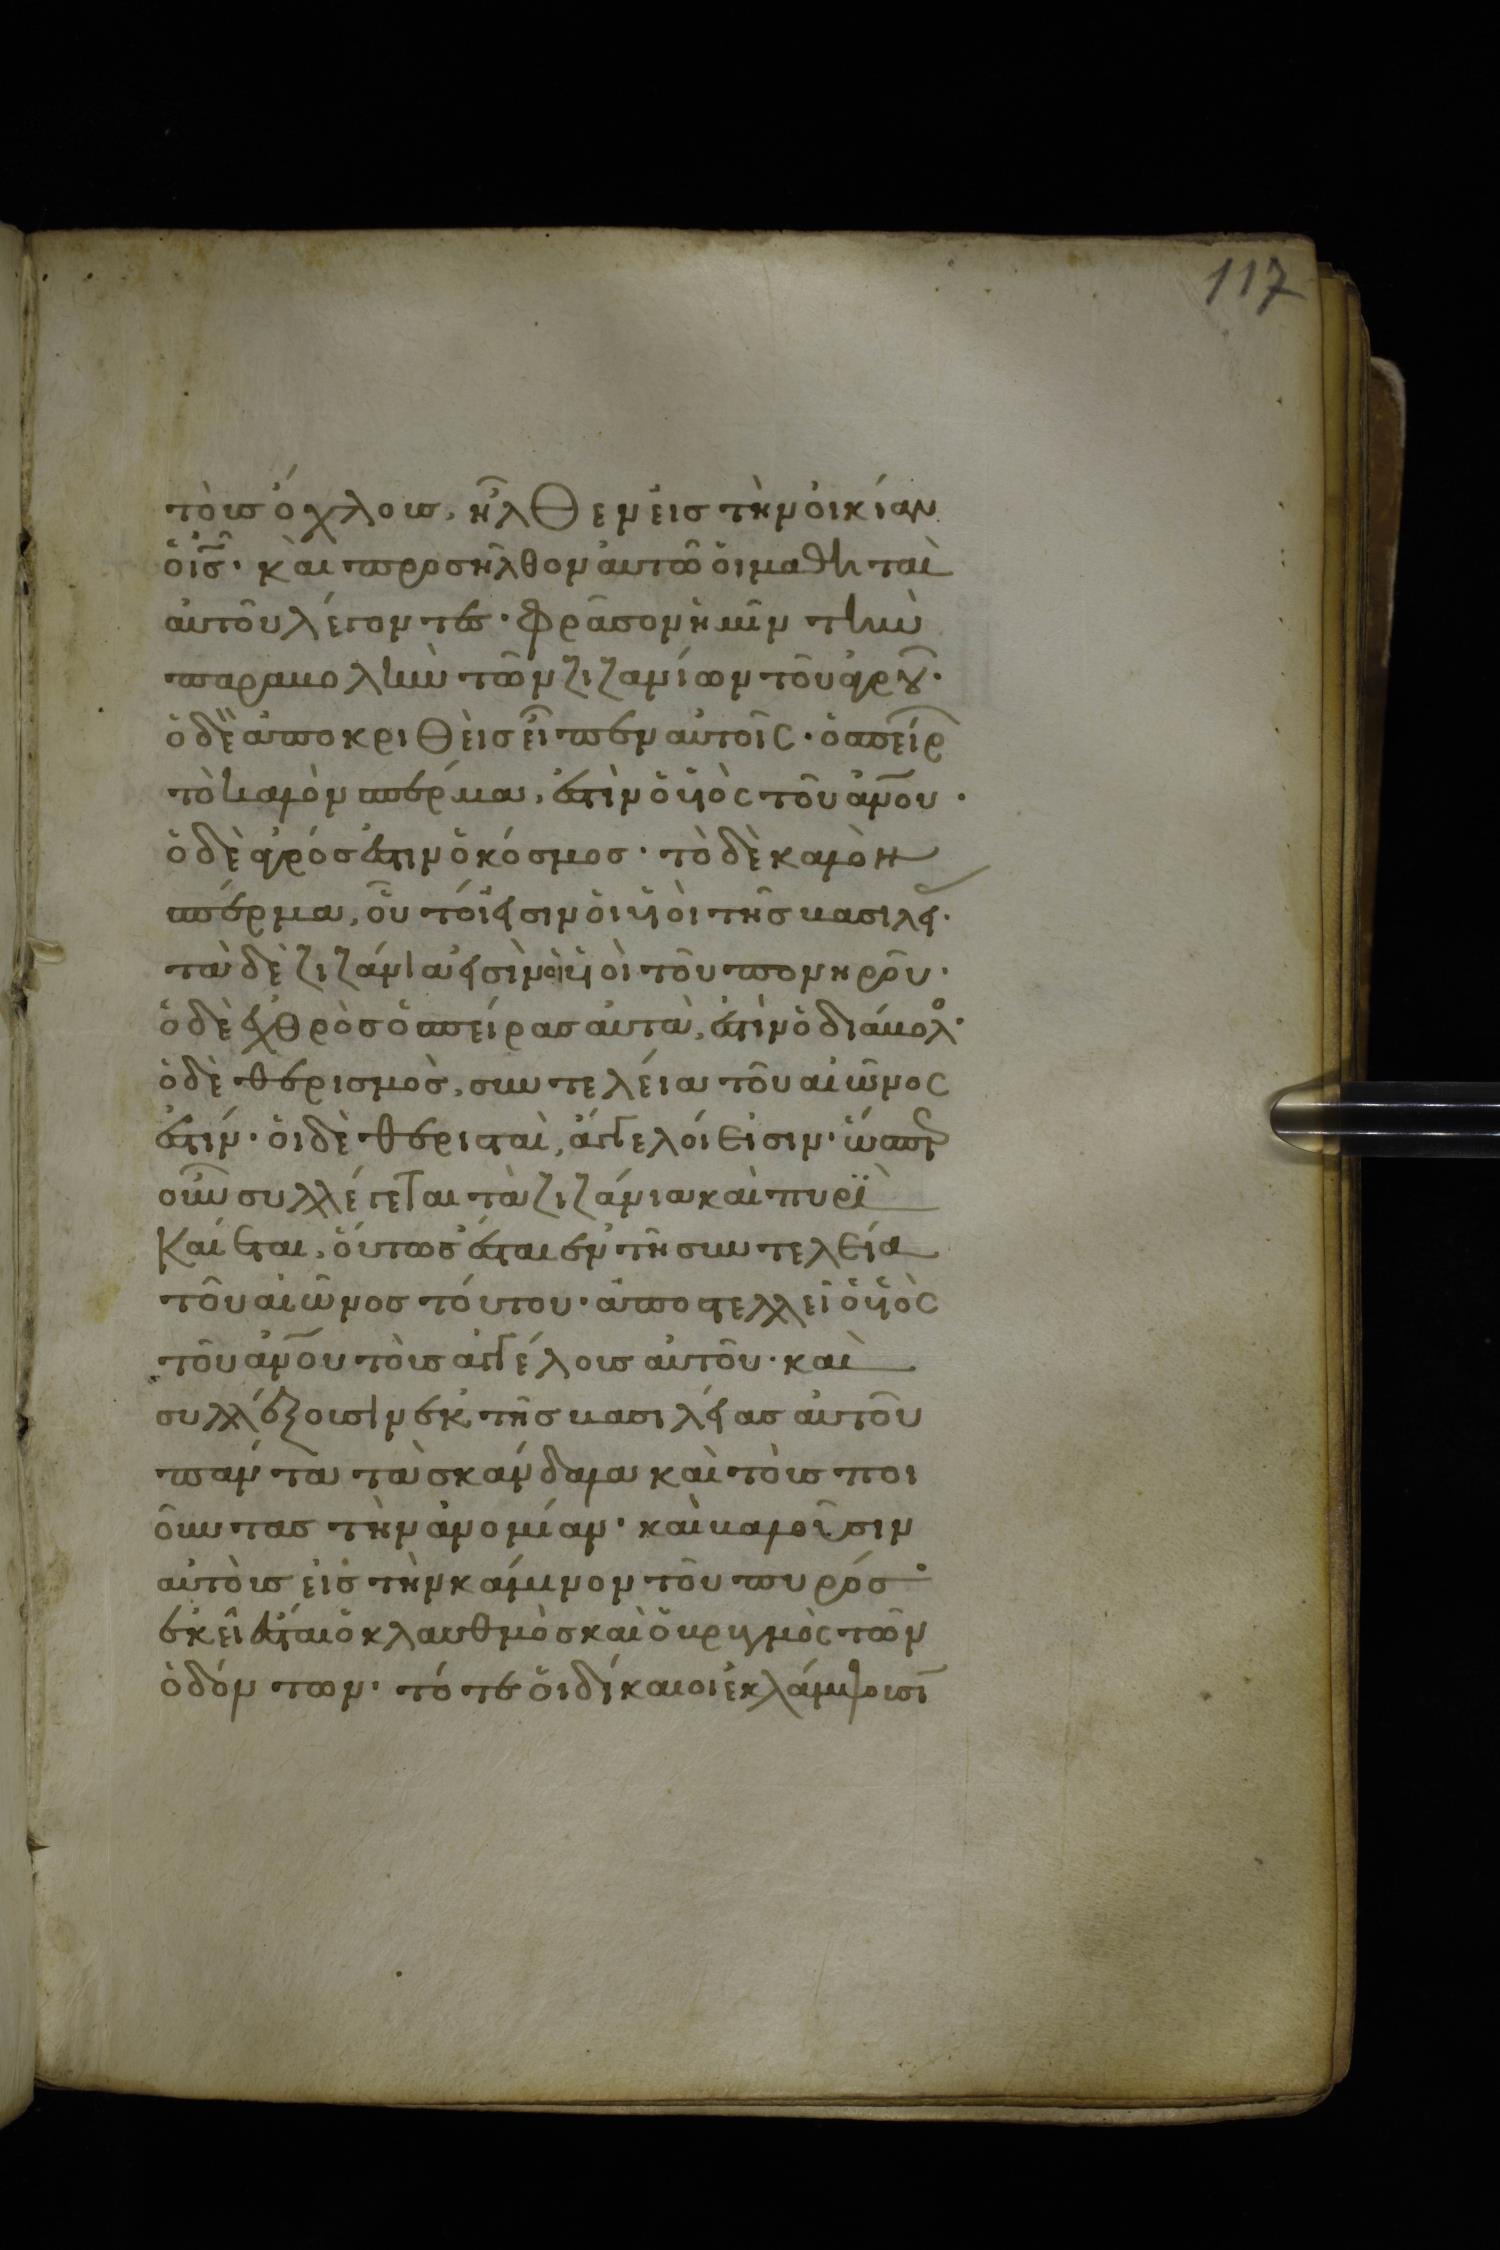 117
τοὺσ ὄχλουσ, ἦλθεν εἰσ τὴν οἰκίαν
ὁ ι̅σ̅· καὶ προσῆλθον αὐτῶ οἱ μαθηταὶ
αὐτοῦ λέγοντεσ· φράσον ἡμῖν τὴν
παραβολὴν τῶν ζιζανίων τοῦ ἀγροῦ·
ὁ δὲ ἀποκριθεὶσ εἶπεν αὐτοῖς· ὁ σπείρ
τὸ καλὸν σπέρμα, ἐστὶν ὁ υἱὸς τοῦ ἀν̅ου·
ὁ δὲ ἀγρόσ ἐστιν ὁ κόσμοσ· τὸ δὲ καλὸν
σπέρμα, οὗτοί εἰσιν οἱ υἱοὶ τῆσ βασιλεί·
τὰ δὲ ζιζάνια εἰσὶν οἱ υἱοὶ τοῦ πονηροῦ·
ὁ δὲ ἐχθρὸσ ὁ σπείρασ αὐτὰ, ἐστὶν ὁ διάβολο·
ὁ δὲ θερισμὸσ, συντέλεια τοῦ αἰῶνος
ἐστίν· οἱ δὲ θερισταὶ, ἄγγελοί εἰσιν· ὥσπερ
οὖν συλλέγεται τὰ ζιζάνια καὶ πυρὶ
καίεται, οὕτωσ ἔσται ἐν τῆ συντελεία
τοῦ αἰῶνοσ τούτου· ἀποστελλεῖ ὁ υἱὸς
τοῦ ἀν̅ου τοὺσ ἀγγέλουσ αὐτοῦ· καὶ
συλλέξουσιν ἐκ τῆσ βασιλείασ αὐτοῦ
πάντα τὰ σκάνδαλα καὶ τοὺσ ποι
οῦντασ τὴν ἀνομίαν· καὶ βαλοῦσιν
αὐτοὺσ εἰσ τὴν κάμινον τοῦ πυρόσ·
ἐκεῖ ἔσται ὁ κλαυθμὸσ καὶ ὁ βρυγμὸς τῶν
ὀδόντων· τότε οἱ δίκαιοι ἐκλάμψουσῑ